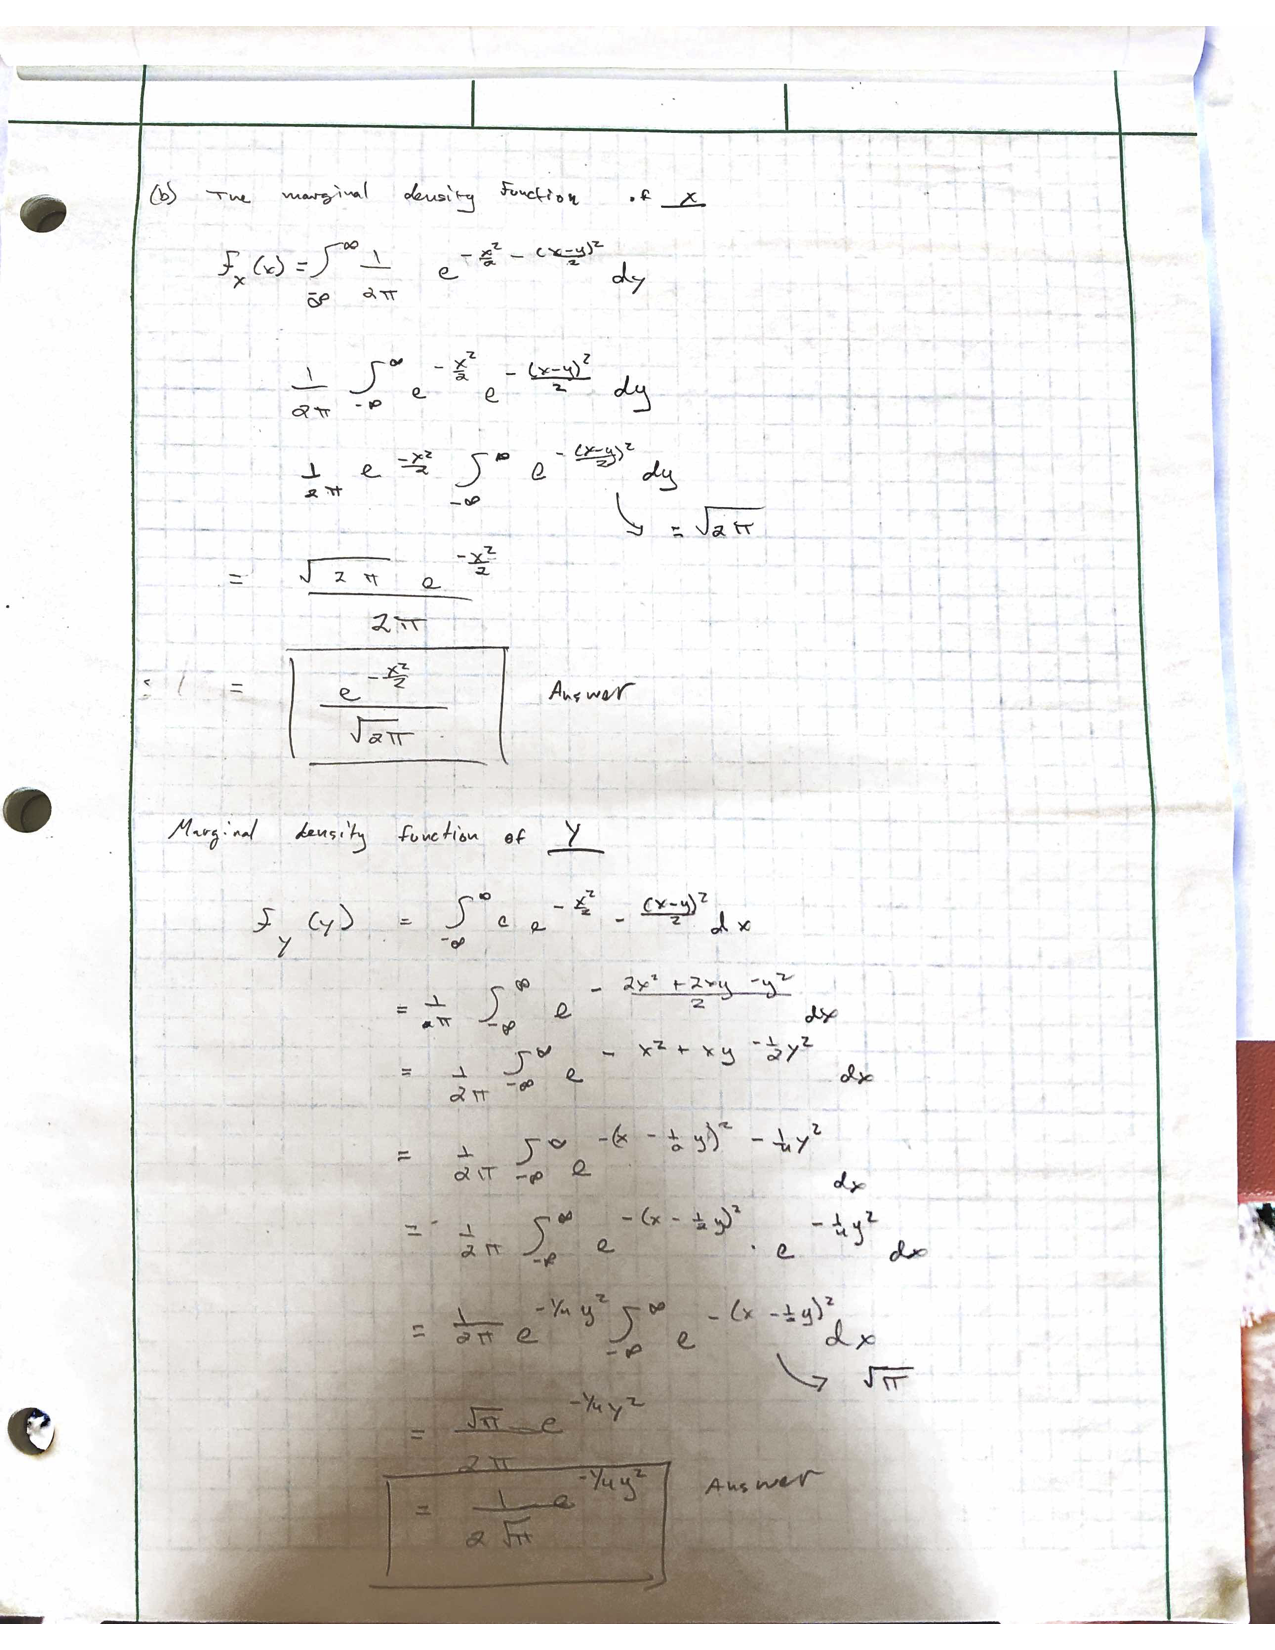 (b) The marginal density function of x
f_x(x) = ∫_{-∞}^{∞} 1/2π e^{-x²/2 - (x-y)²/2} dy
1/2π ∫_{-∞}^{∞} e^{-x²/2} e^{-(x-y)²/2} dy
1/2π e^{-x²/2} ∫_{-∞}^{∞} e^{-(x-y)²/2} dy
↘ = √2π
= √2π e^{-x²/2} / 2π
= e^{-x²/2} / √2π Answer
Marginal density function of Y
f_y(y) = ∫_{-∞}^{∞} c e^{-x²/2 - (x-y)²/2} dx
= 1/2π ∫_{-∞}^{∞} e^{- (2x² + 2xy - y²)/2} dx
= 1/2π ∫_{-∞}^{∞} e^{- x² + xy - ½y²} dx
= 1/2π ∫_{-∞}^{∞} e^{-(x - ½y)² - ¼y²} dx
= 1/2π ∫_{-∞}^{∞} e^{-(x - ½y)²} · e^{-¼y²} dx
= 1/2π e^{-1/4 y²} ∫_{-∞}^{∞} e^{-(x - ½y)²} dx
↘ √π
= √π e^{-1/4 y²} / 2π
= 1/(2√π) e^{-1/4 y²} Answer